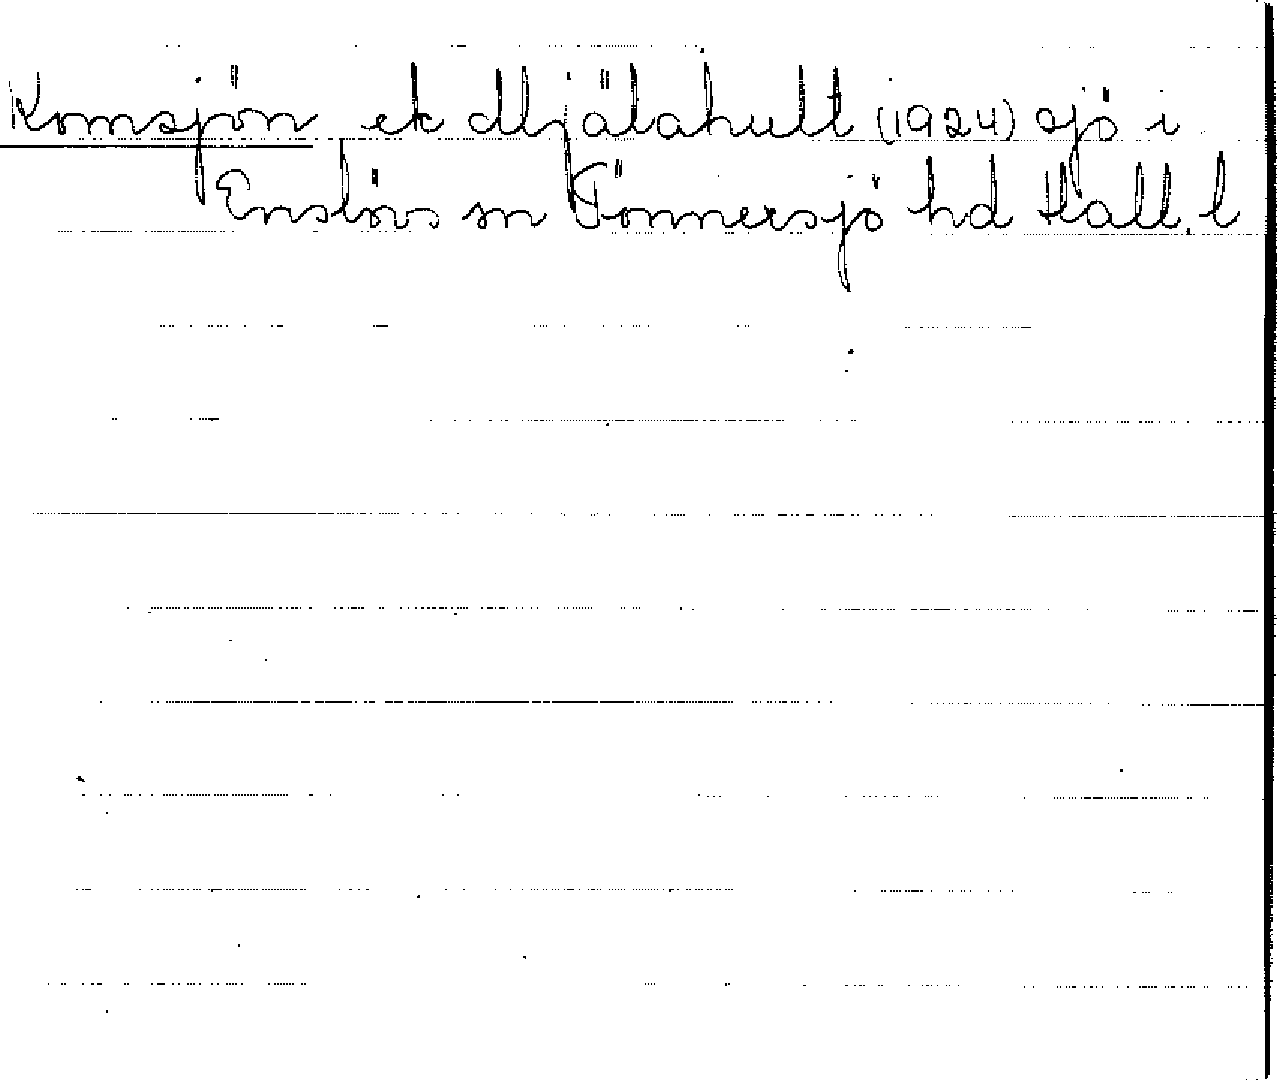 Komsjön ek Mjälahult (1924) sjö i
Enslövs sn Tönnersjö hd Hall. l